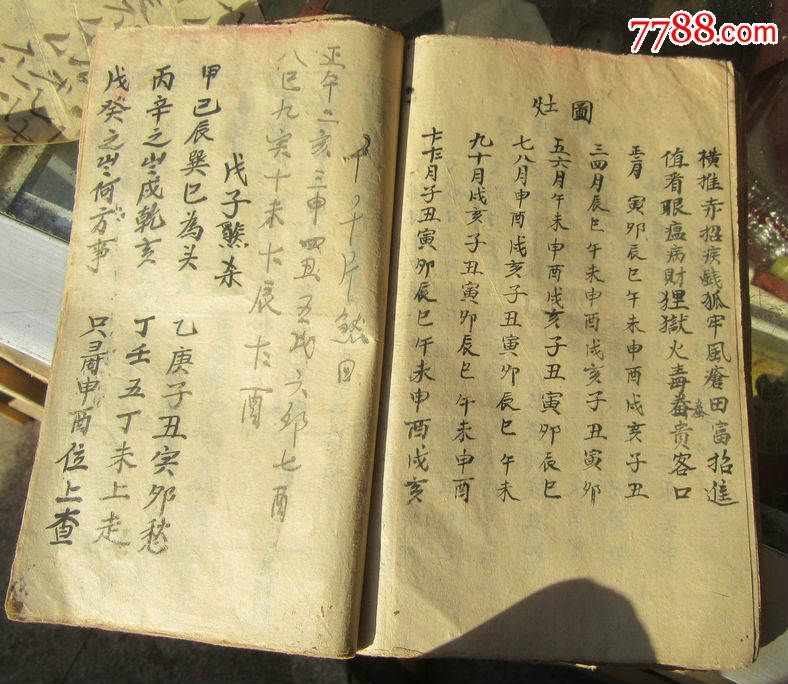 7788.com
圖灶
橫推赤招疾戲狐牢風瘡田富招進
值看眼瘟病財狸獄火毒畜貴客口
正二月寅卯辰巳午未申酉戌亥子丑
三四月辰巳午未申酉戌亥子丑寅卯
五六月午未申酉戌亥子丑寅卯辰巳
七八月申酉戌亥子丑寅卯辰巳午未
九十月戌亥子丑寅卯辰巳午未申酉
十十二月子丑寅卯辰巳午未申酉戌亥
正午二亥三申四丑五戌六卯七酉
八巳九寅十未十辰十酉
戊子煞
甲己辰巽巳為头 乙庚子丑寅卯愁
丙辛之岁戌乾亥 丁壬五丁未上走
戊癸之岁何方事 只寻申酉位上查